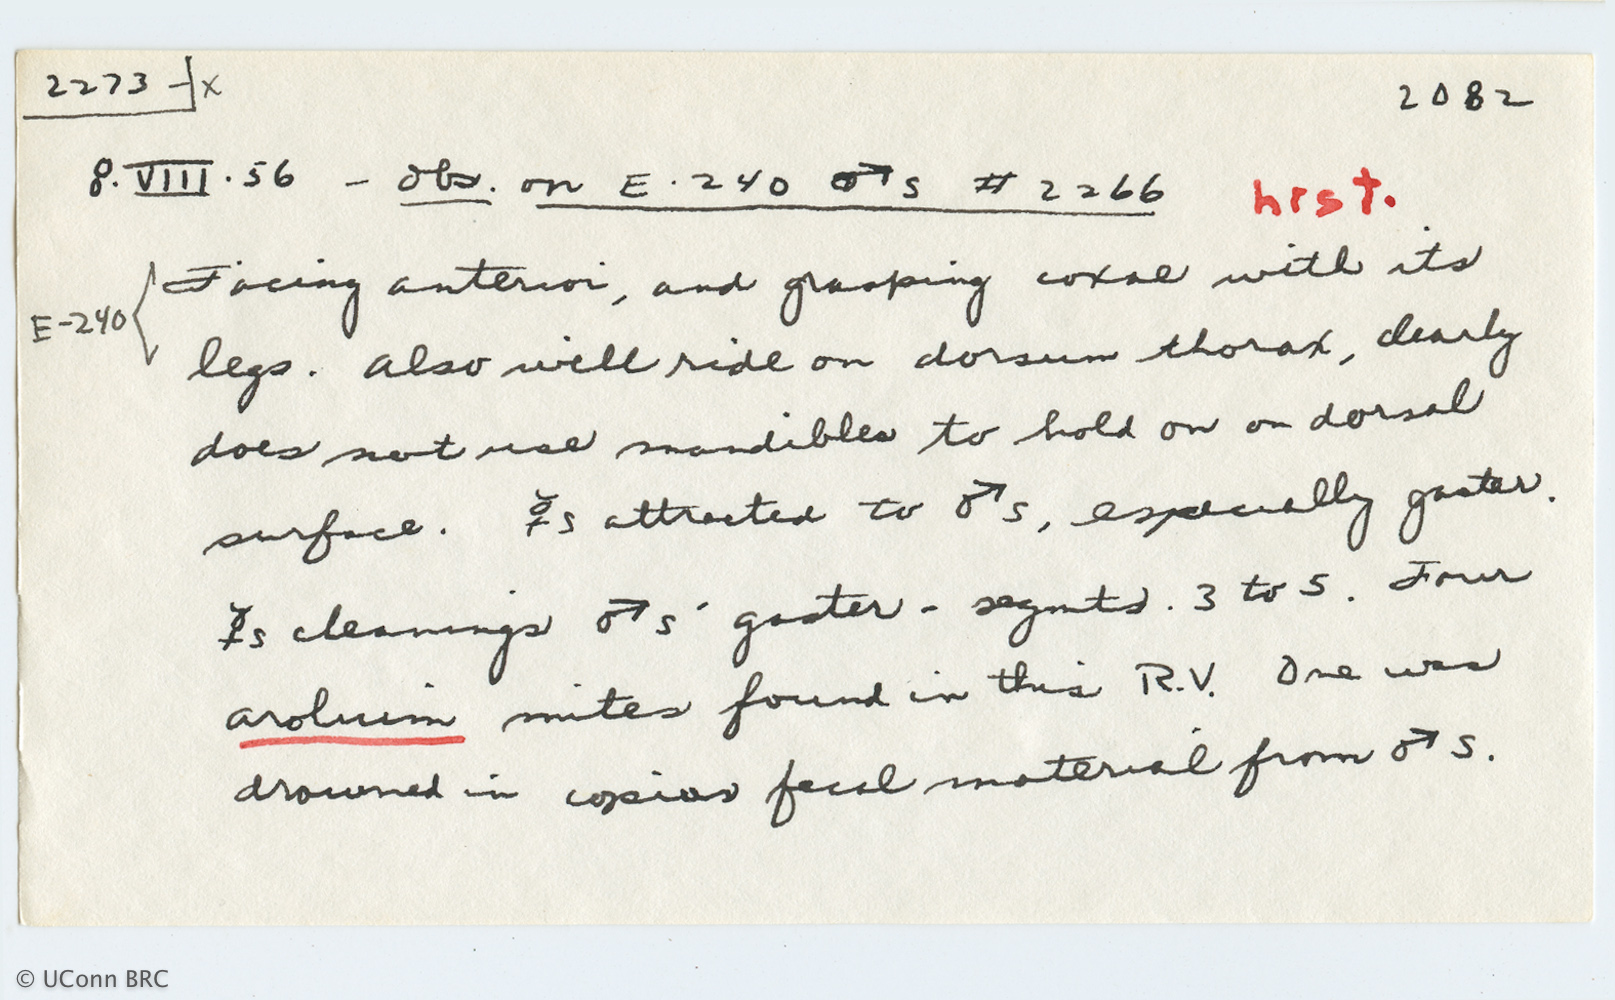 2273 -x
2082
8.VIII.56 - Obs. on E.240 ♂s # 2266
hist.
E-240
Facing anterior, and grasping coxae with its
legs. Also will ride on dorsum thorax, clearly
does not use mandibles to hold on on dorsal
surface. ☿s attracted to ♂s, especially gaster.
☿s cleanings ♂s' gaster - segmts. 3 to 5. Four
arolium mites found in this R.V. One was
drowned in copius fecal material from ♂s.
© UConn BRC